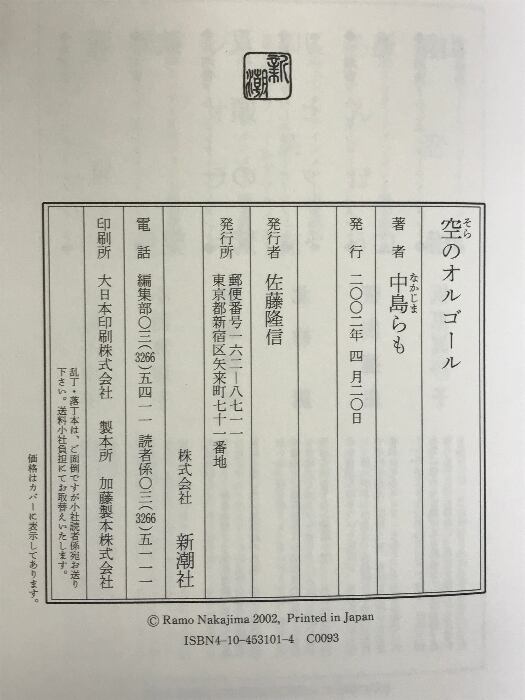 新潮
空のオルゴール
そら
著者 中島らも
なかじま
発行 二〇〇二年四月二〇日
発行者 佐藤隆信
発行所
郵便番号一六二―八七一一
東京都新宿区矢来町七十一番地
株式会社 新潮社
電話 編集部〇三(3266)五四一一 読者係〇三(3266)五一一一
印刷所 大日本印刷株式会社 製本所 加藤製本株式会社
乱丁・落丁本は、ご面倒ですが小社読者係宛お送り
下さい。送料小社負担にてお取替えいたします。
価格はカバーに表示してあります。
© Ramo Nakajima 2002, Printed in Japan
ISBN4-10-453101-4 C0093